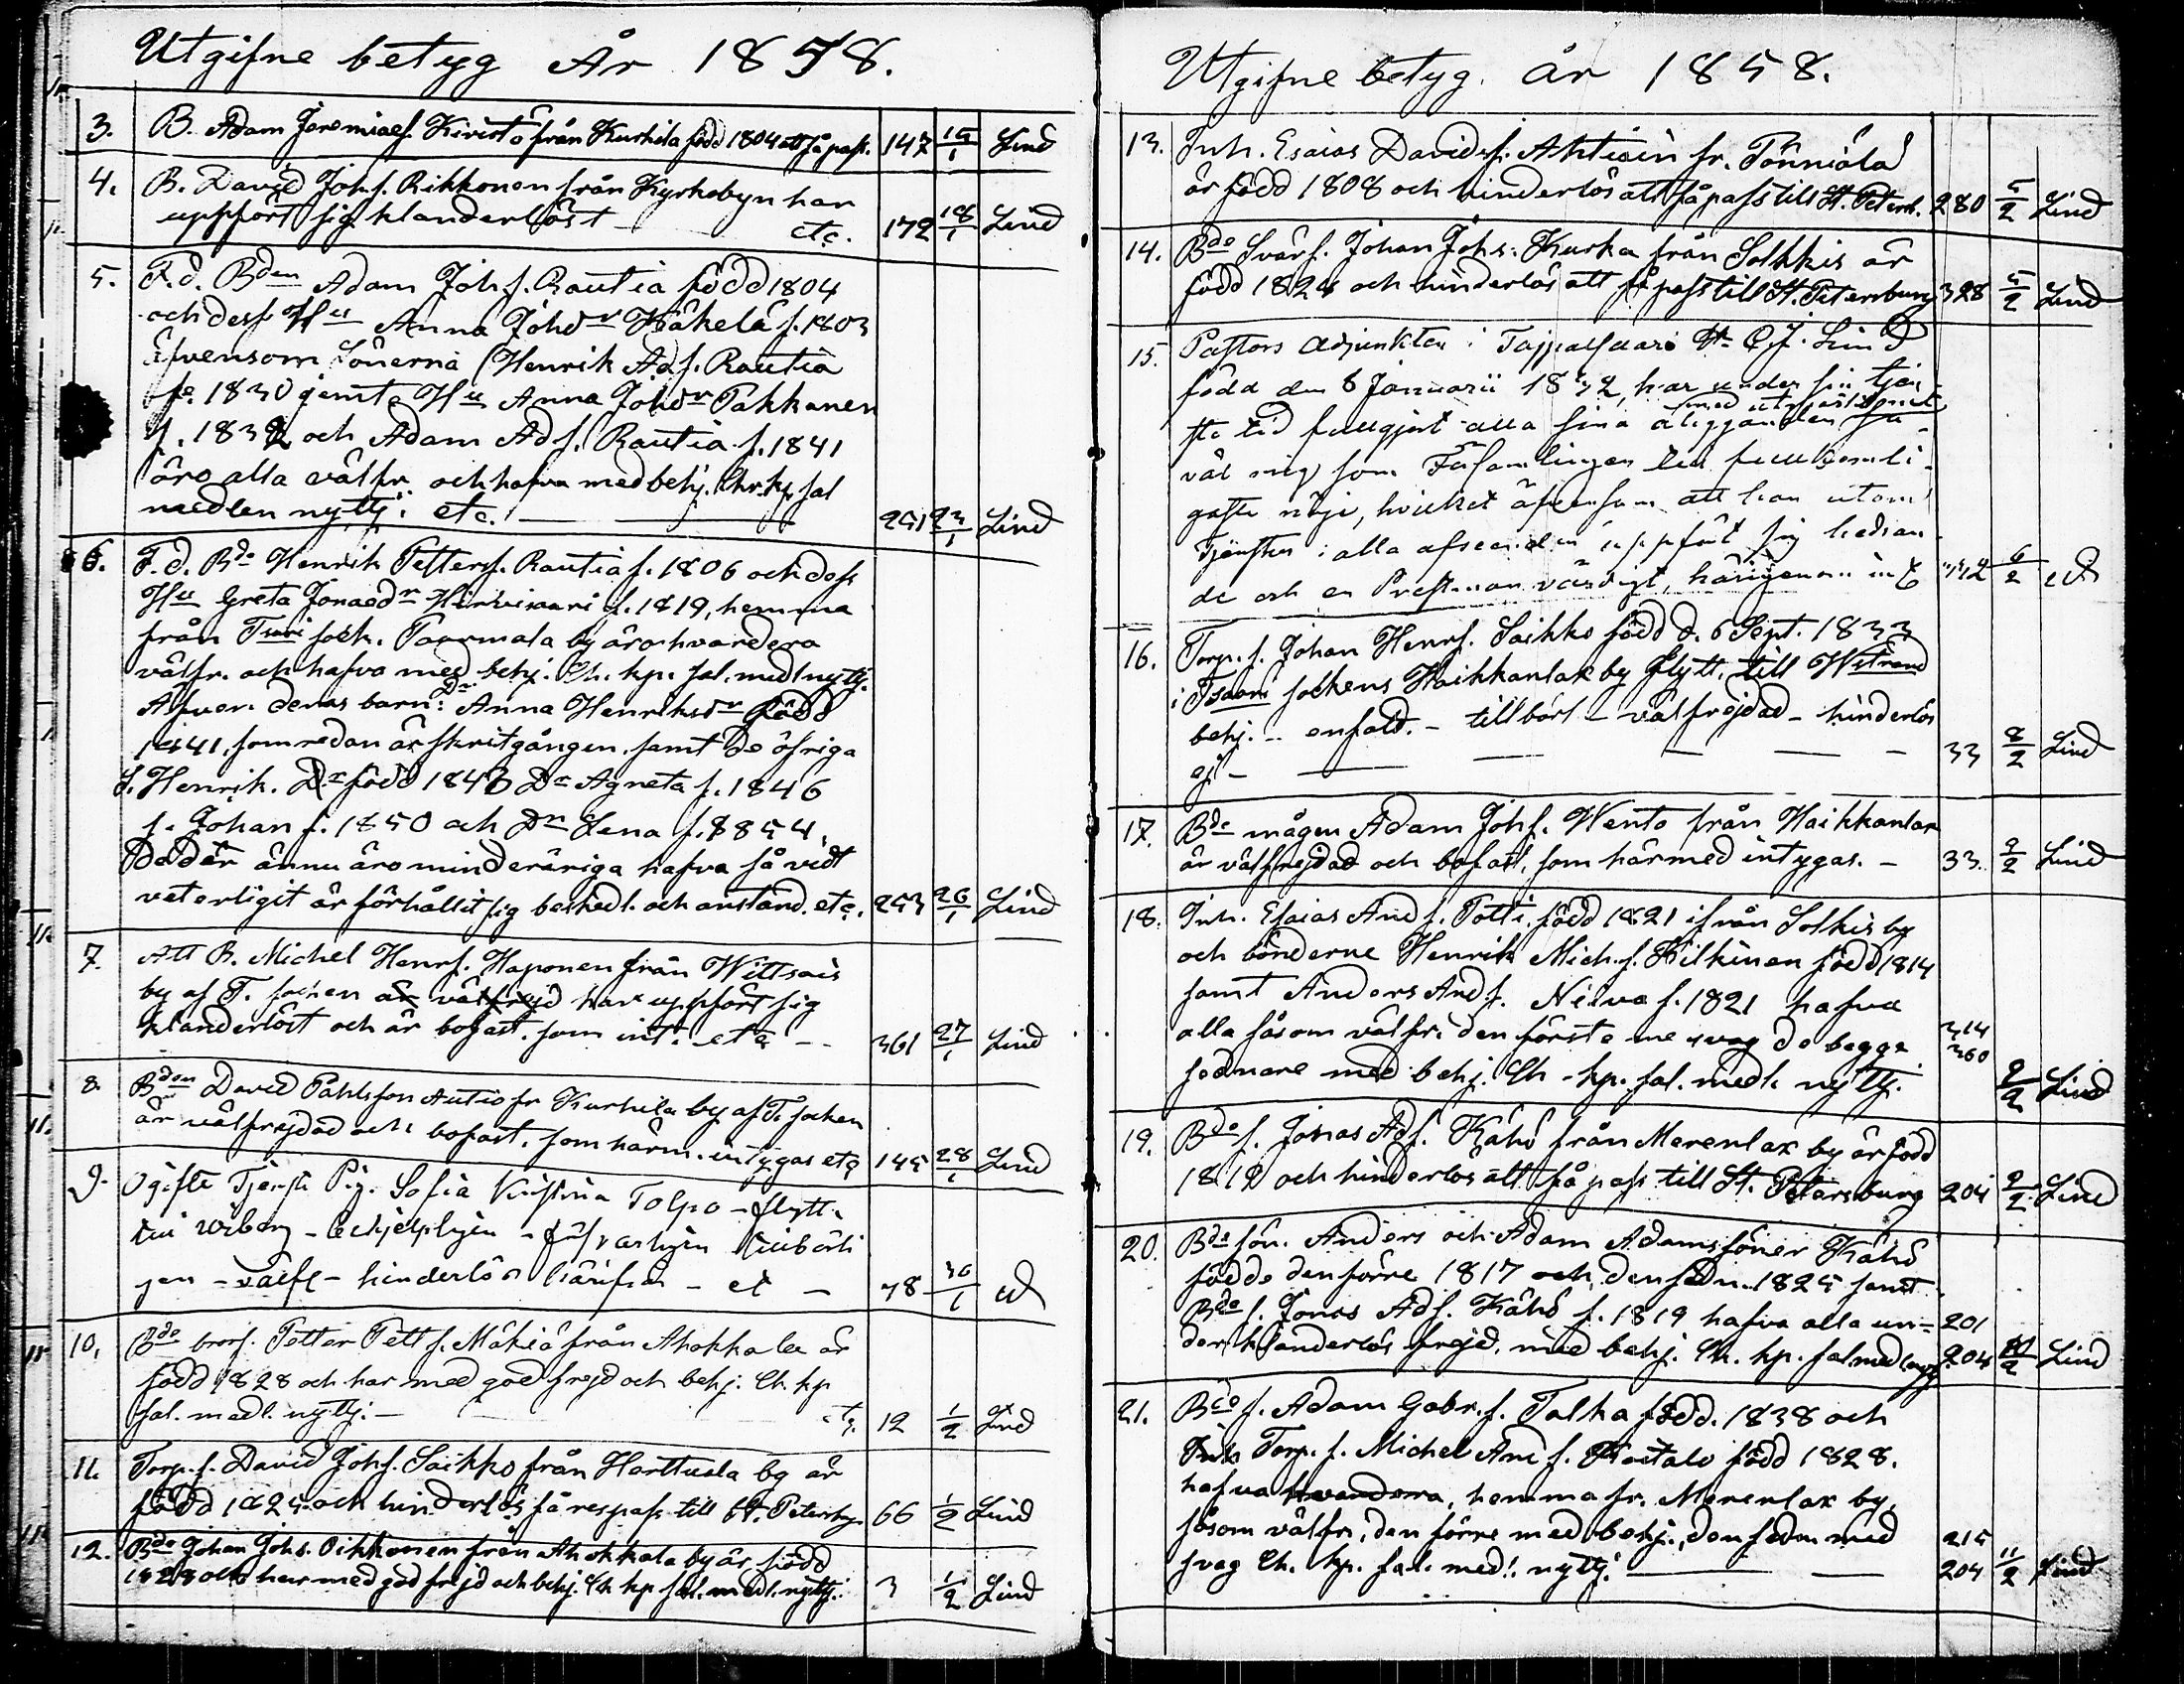 Utgifne betyg År 1858.
3. B. Adam Jeremiaes. Kiristö från Kurkela född 1804 att få pass. 147 15/1 Lind
4. B. David Johs. Rikkonen från Kyrkobyn har
uppfört sig klanderlöst etc. 172 18/1 Lind
5. F.d. Bden Adam Johs. Rautia född 1804
och dess Hu Anna Johdr Käkelä f. 1803
äfvensom Sönerna Henrik Ads. Rautia
fö. 1830 jemte Hu Anna Johdr Pakkanen
f. 1832 och Adam Ads. Rautia f. 1841
äro alla välfr. och hafva med behj. Chr. kp sal
medlen nyttj. etc. 251 23/1 Lind
6. F.d. Bde Henrik Petters. Rautia f. 1806 och dess
Hu Greta Jonaedr Hirvivaari f. 1819, hemma
från sock. Paarmala by äro hvardera
välfr. och hafva med behj. Ch. kp. sal. medl nyttj.
Äfven deras barn: Dr Anna Henriksdr född
1841, som redan är skritgången, samt de öfriga
S. Henrik. född 1843 Dr Agneta f. 1846
s. Johan f. 1850 och Dr Lena f. 1854.
De der ännu äro minderåriga hafva så vidt
veterligit är förhållit sig beskedl. och anständ. etc. 253 26/1 Lind
7. Att B. Michel Henrs. Haponen från Wittsais
by af T. socken är välfrejd har uppfört sig
klanderlöst och är bofast, som int. etc 361 27/1 Lind
8. Bden David Påhlsson Autio fr Kurkela by af T. socken
är välfrejdad och bofast, som härm. intygas etc 145 28/1 Lind
9. Ogifte Tjenste Pig. Sofia Kristina Tolpo - flytt.
till Wiborg - behjelpligen - försvarligen tillbörli
gen - välfr - hinderlös härifrån - et 78 30/1
10. Bde brors. Petter Petts. Mäkiä från Ahokkala är
född 1828 och har med god frejd och behj. Ch. kp
sal. medl. nyttj. etc. 12 1/2 Lind
11. Torp. s. David Johs. Saikko från Harttuala by är
född 1825 och hinderlös få respass till St. Petersbg 66 1/2 Lind
12. Bde Johan Johs. Oikkonen från Ahokkala by är född
1828 och har med god frejd och behj. Ch kp sal. medl. nyttj. 3 1/2 Lind
Utgifne betyg. år 1858.
13. Inh. Esaias Davids. Ahtiain fr. Tönniälä
är född 1808 och hinderlös att få pass till St. Petersb. 280 5/2 Lind
14. Bde Svärs. Johan Johs. Kurka från Solkkis är
född 1824 och hinderlös att få pass till St. Petersburg 328 5/2 Lind
15. Pastors Adjunkten i Taipalsaari Hr C.J. Lind
född den 8 Januarii 1832, har under sin tjen
ste tid fullgjort alla sina åligganden med
väl mig som Församlingen till fullkomli
gaste nöje, hvilket äfvensom att han utom
Tjensten i alla afseenden uppfört sig hedran
de och en Prestman värdigt, härigenom int 6/2
16. Torp. s. Johan Henrs. Saikko född d. 6 Sept. 1833
i sockens Haikkanlax by flytt. till Wstrand
behj. - enfald. - tillbörl - välfrejdad - hinderlös
33 8/2 Lind
17. Bde mågen Adam Johs. Wento från Haikkanlax
är välfrejdad och bofast, som härmed intygas. - 33. 9/2 Lind
18. Inh. Esaias Ands. Potti född 1821 ifrån Solkis by
och bönderne Henrik Mich. s. Hilkinen född 1814
samt Anders Ands. Neuva f. 1821 hafva
alla såsom välfr. den förste me svag de begge 314 360
sednare med behj. Ch - kp. sal. medl. nyttj. 9/2 Lind
19. Bde s. Jonas Ads. Kähö från Merenlax by är född
1819 och hinderlös att få pass till St. Petersburg 204 9/2 Lind
20. Bde sön. Anders och Adam Adamssöner Kähö
födde den förre 1817 och den sedn. 1825 samt
Bde s. Jonas Ads. Kähö f. 1819 hafva alla un- 201
der klanderlös frejd, med behj. Ch. kp. sal med 204 11/2 Lind
21. Bde s. Adam Gabr. s. Talka född. 1838 och
Torp. s. Michel And s. född 1828.
hafva hvardera, hemma fr. Merenlax by,
såsom välfr., den förre med behj., den sedn med 215
svag Ch. kp. sal. medl. nyttj. 204 11/2 Lind